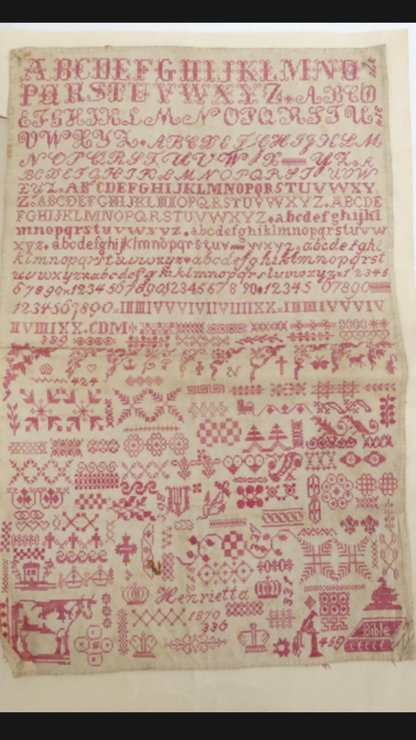 ABCDEFGHIJKLMNO
PQRSTUVWXYZ ABCD
EFGHIKLMNOPQRSTUE
VWXYZ ABCDEFGHIJKLM
NOPQRSTUVWX YZ
BCDEFGHIJKLMNOPQRSTUVW
XYZ ABCDEFGHIJKLMNOPQRSTUVWXY
Z ABCDEFGHIJKLMNOPQRSTUVWXYZ ABCDE
FGHIJKLMNOPQRSTUVWXYZ abcdefghijkl
mnopqrstuvwxyz abcdefghijklmnopqrstuvw
xyz abcdefghijklmnopqrstuv wxyz abcdefghi
klmnopqrstuvwxyz abcdefghiklmnopqrst
uvwxyz abcdefghiklmnopqrstuvwxyz 12345
67890 1234567890 12345 67890
1234567890 I II III IV V VI VII VIII IX X I II III IV V VI V
CDM
339
424
Henrietta
1870
336
459
Bible